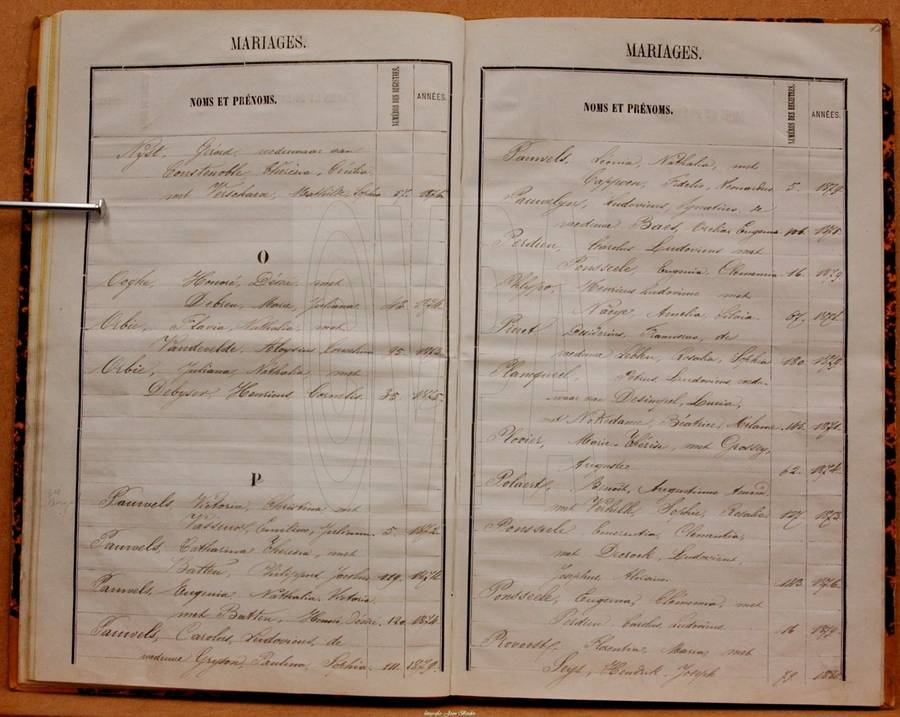 MARIAGES.
NOMS ET PRÉNOMS.
NUMÉROS DES REGISTRES.
ANNÉES.
Nyst, Gérard, weduwaar van
Constenoble, Theresia, Cecilia
met Verschaere, Mathilde, Sophia 57.
O
Ooghe, Honoré, Désiré, met
Debreu, Maria, Juliana
Orbie, Flavia, Nathalia, met
Vandevelde, Aloysius, 95
Orbie, Juliana, Nathalia, met
Debyser, Henricus, Cornelis. 35 1875.
P
Pauwels, Victoria, Christina met
Emilius, Julianus. 5.
Pauwels, Catharina Theresia, met
Batten, Philippus, Jacobus 119. 1874
Pauwels, Eugenia Nathalia Victoria
met Batten, Henri, Désiré. 120 1874.
Pauwels, Carolus, Ludovicus, de
weduwe Gryson, Paulina, Sophia. 111. 1879.
MARIAGES.
NOMS ET PRÉNOMS.
NUMÉROS DES REGISTRES.
ANNÉES.
Pauwels, Leonia, Nathalia, met
Cappoen, Fidelis, Bernardus 5. 1879.
Pauwelyn, Ludovicus, Ignatius, de
weduwe Baes, Eugenia 106. 1875.
Perdieu, Carolus Ludovicus met
Ponsseele, Eugenia, Clemencia 16 1879
Phlypo, Henricus Ludovicus met
Naeye, Amelia, Silvia. 67.
Pieret Desiderius, Franciscus, de
weduwe Rosalia, Sophia 180. 1879.
Plancqueel, Petrus, Ludovicus, wedu-
waar van Desinpel, Lucia,
met Notredame, Béatrice, Melanie
Plovier, Marie Thérèse, met Grossey,
Auguste 62. 1874.
Polaert, Benoit, Augustinus
met Verhille, Sophie, Rosalie 127 1873.
Ponsseele Emerentia, Clementia,
met Declerck, Ludovicus,
Josephus, 143 1876.
Ponsseele, Eugenia, Clemencia, met
Perdieu Carolus, Ludovicus. 16 1879.
Provoost, Florentia, Maria, met
Seys, Hendrik, Joseph 1880